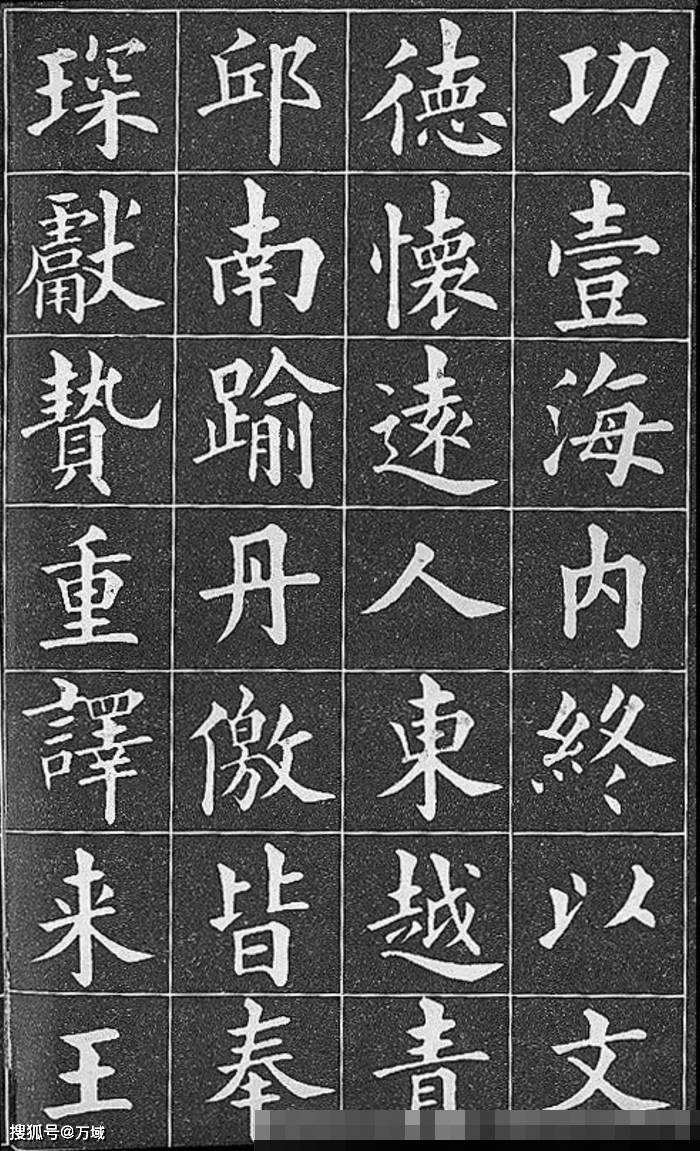 功壹海内終以文
德懷遠人東越青
邱南踰丹儌皆奉
琛獻贄重譯来王
搜狐号@万域